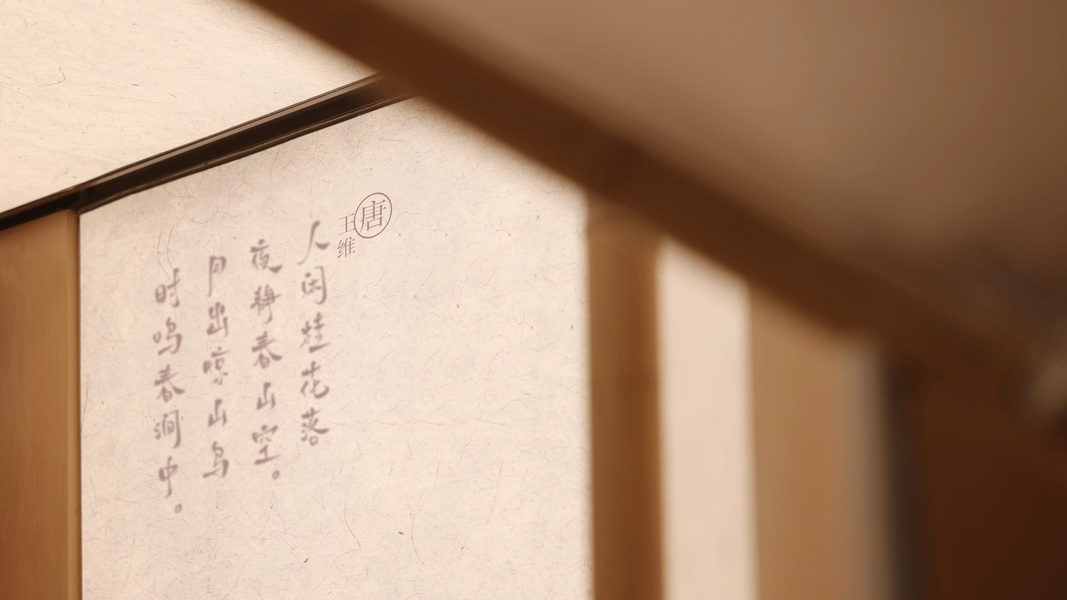 唐
王维
人闲桂花落
夜静春山空。
月出惊山鸟
时鸣春涧中。